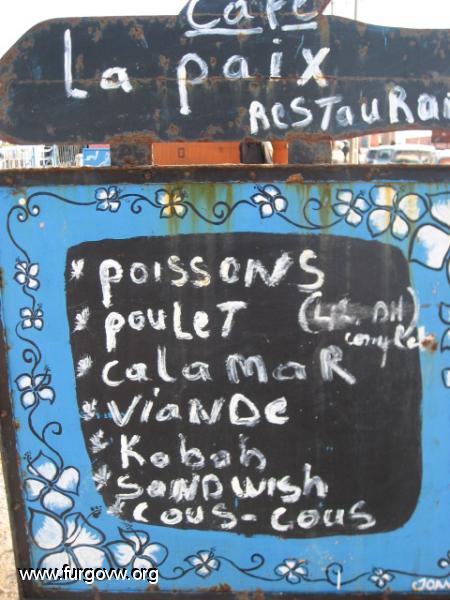 Café
La paix
RESTauRa
* POISSONS
* POULET
complet
* calamaR
* VIANDE
* Kabab
* SANDWIsh
* COUS-COUS
www.furgovw.org